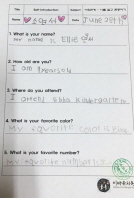 Title Self introduction Subject
Name 소영서 Date June 29th
1. What is your name?
My name is
2. How old are you?
I am 7 years old
3. Where do you attend?
I attend kindergarten
4. What is your favorite color?
My favorite color is Pink
5. What is your favorite number?
My favorite number is